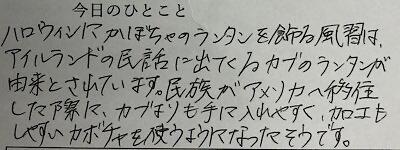 今日のひとこと
ハロウィンにかぼちゃのランタンを飾る風習は、
アイルランドの民話に出てくるカブのランタンが
由来とされています。民族がアメリカへ移住
した際に、カブよりも手に入れやすく、加工も
しやすいカボチャを使うようになったそうです。